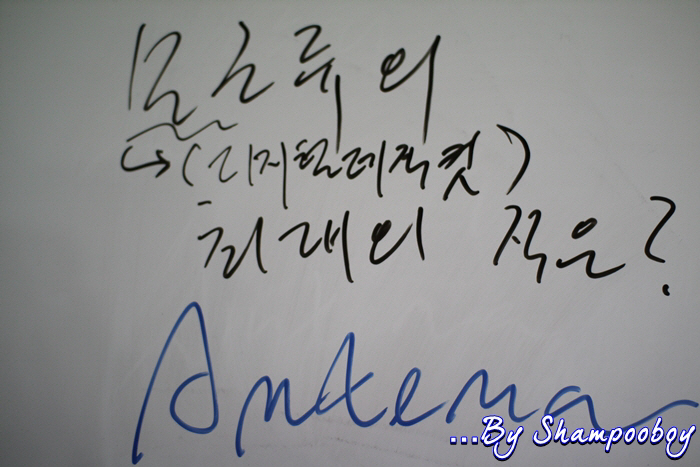 물류의
→(디지털데칵컷)
최대의 적은?
Antena
...By Shampooboy